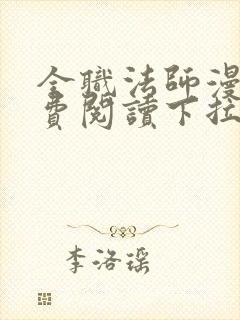 全職法師漫
費閱讀下拉
李洛瑶